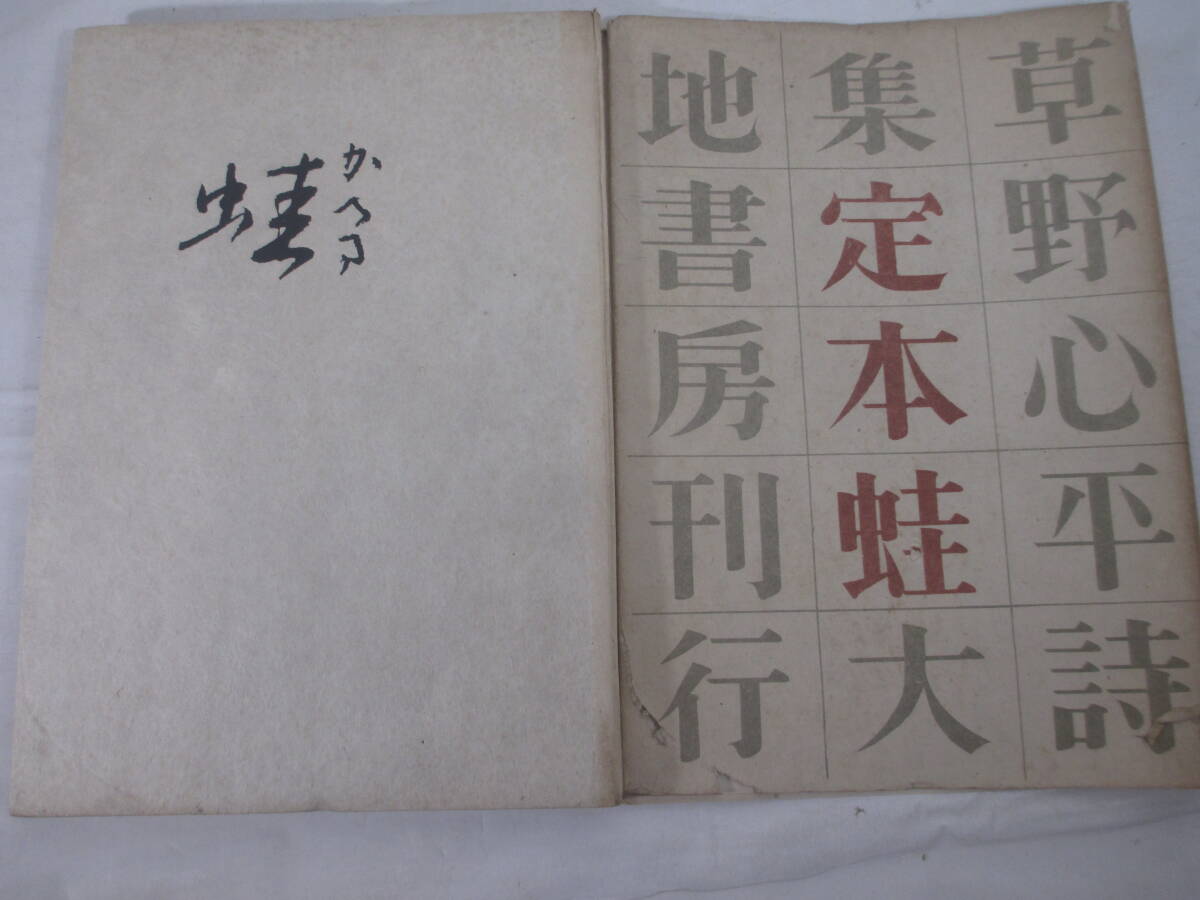 草野心平詩
集定本蛙大
地書房刊行
かへる
蛙